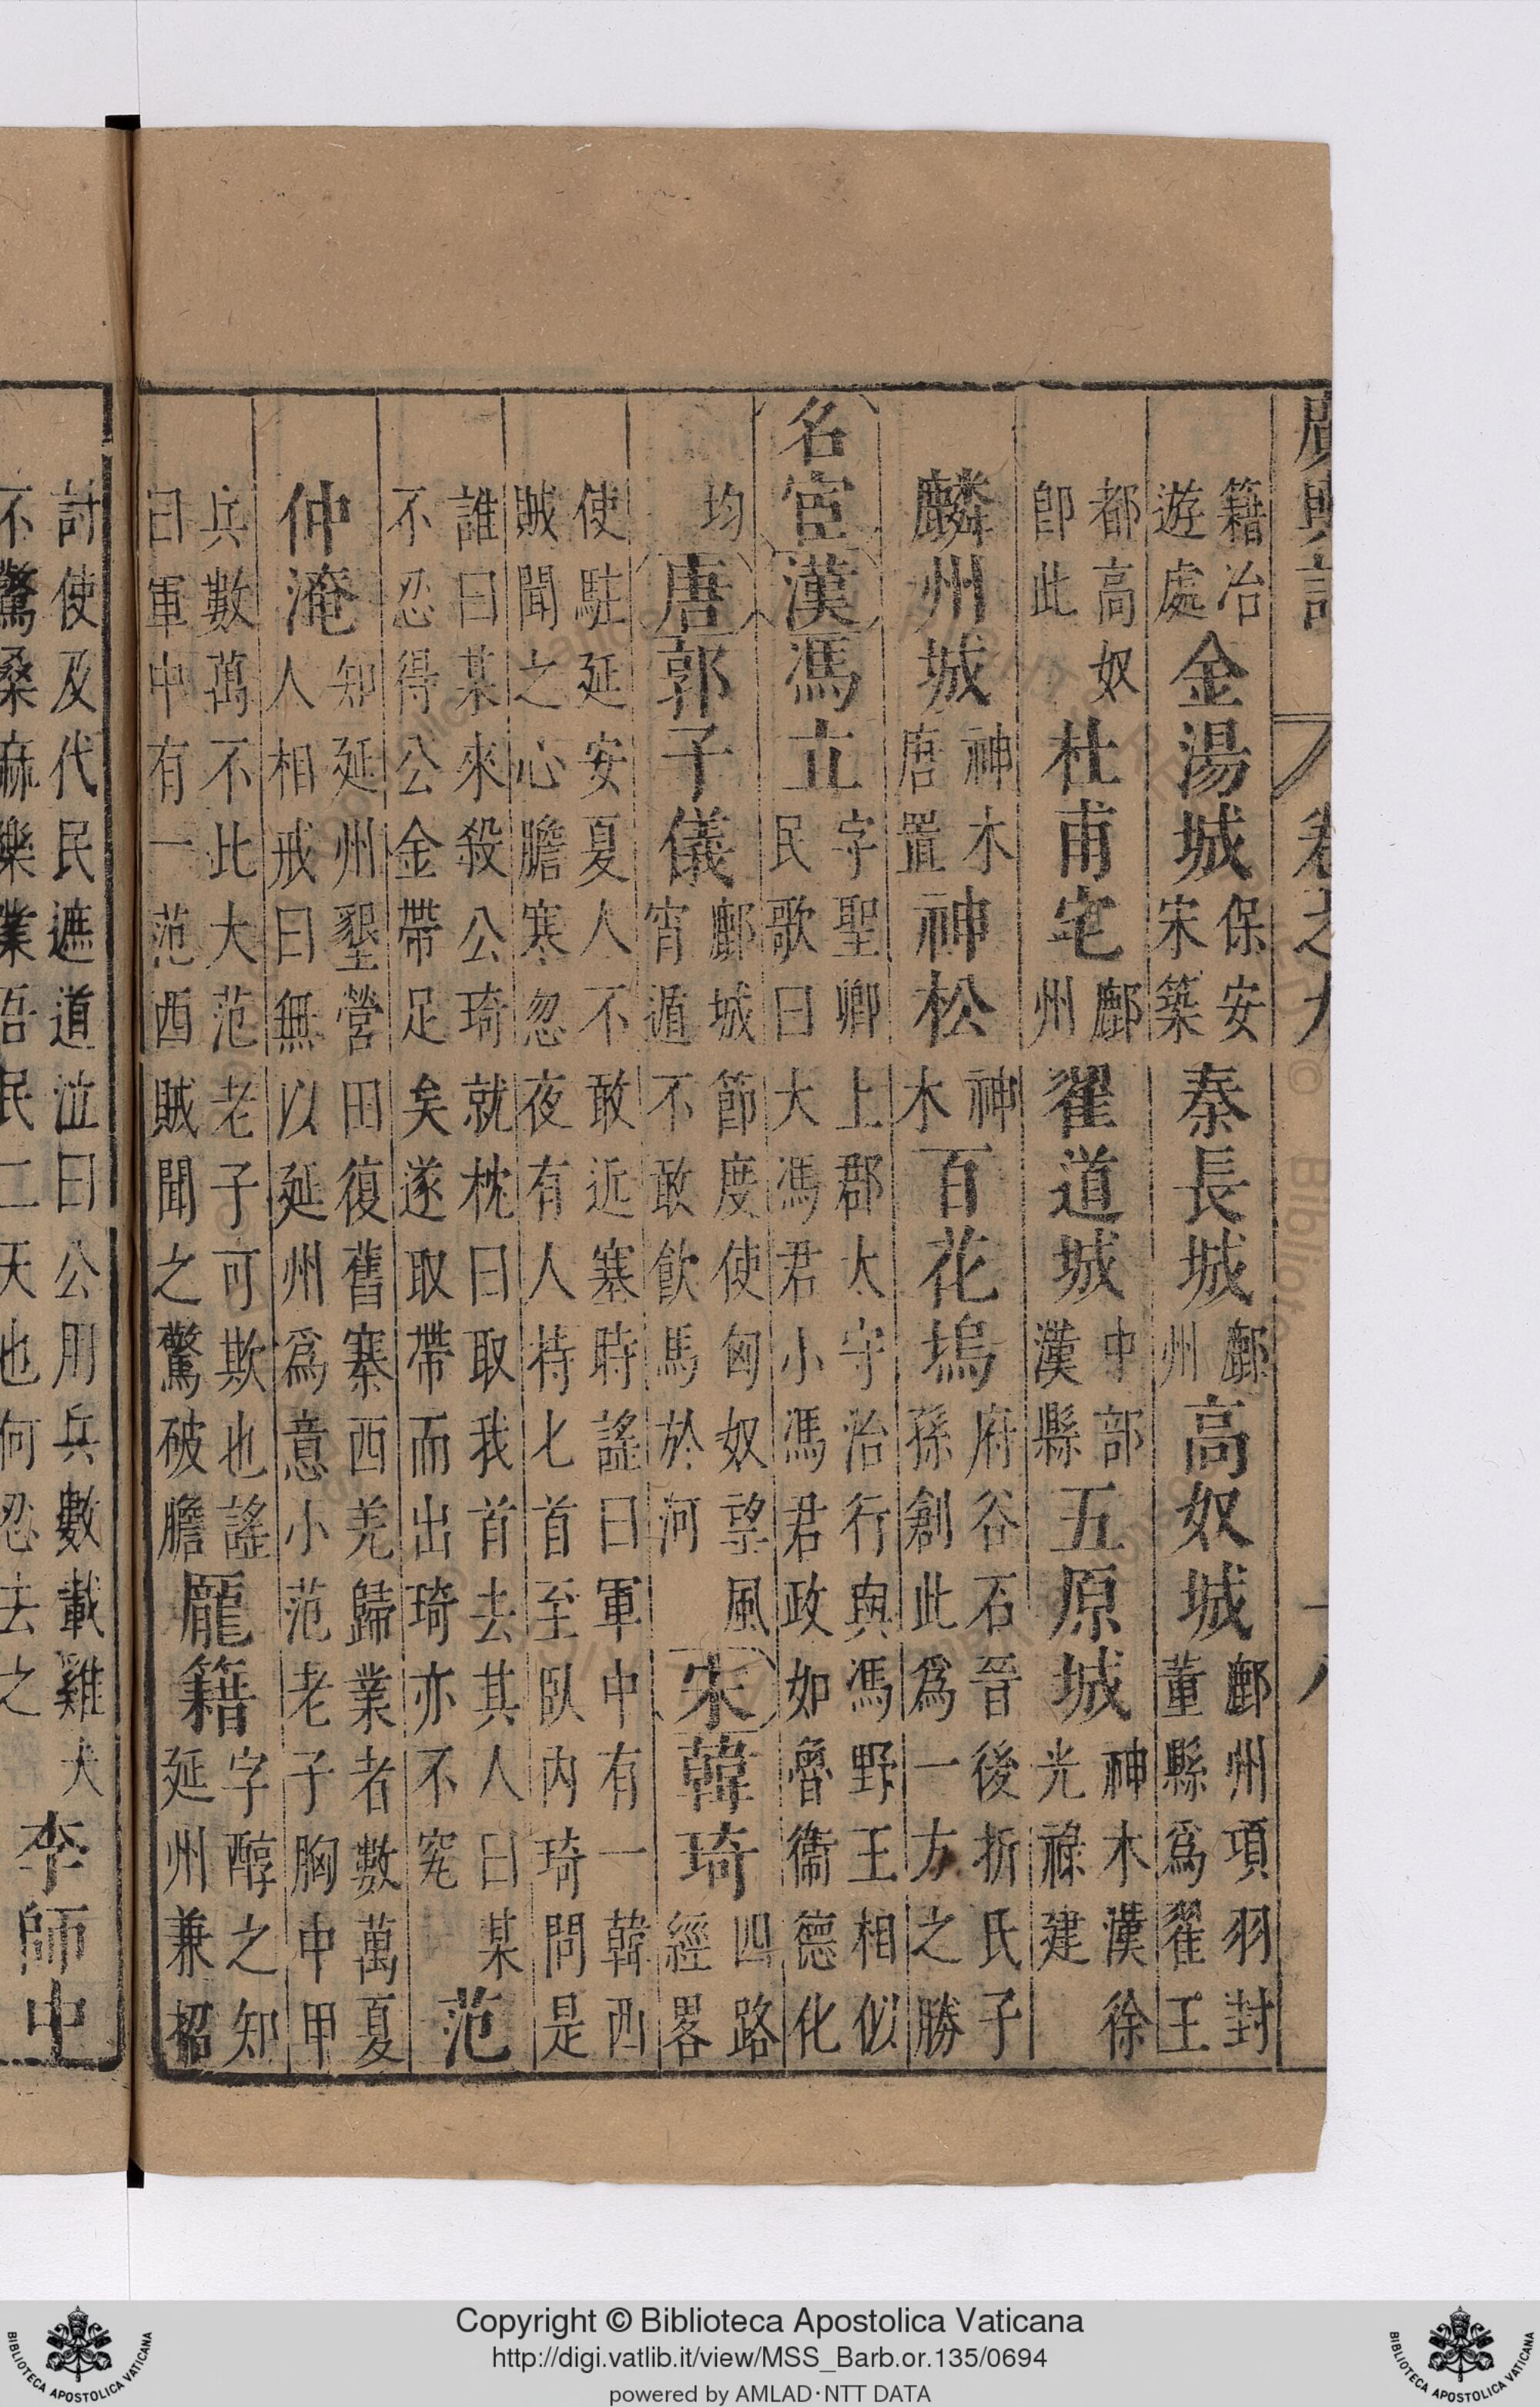 廣輿記 卷之九 十八
籍冶遊處金湯城保安宋築秦長城鄜州高奴城鄜州項羽封董縣爲翟王
都高奴卽此杜甫宅鄜州翟道城中部漢縣五原城神木漢徐光祿建
麟州城神木唐置神松神木百花塢府谷石晉後折氏子孫創此爲一方之勝
名宦漢馮立字聖卿上郡太守治行與馮野王相似民歌曰大馮君小馮君政如魯衞德化
均唐郭子儀鄜城節度使匈奴望風宵遁不敢飲馬於河宋韓琦四路經畧
使駐延安夏人不敢近塞時謠曰軍中有一韓西賊聞之心膽寒忽夜有人持匕首至臥內琦問是
誰曰某來殺公琦就枕曰取我首去其人曰某不忍得公金帶足矣遂取帶而出琦亦不究范
仲淹知延州墾營田復舊寨西羌歸業者數萬夏人相戒曰無以延州爲意小范老子胸中甲
兵數萬不此大范老子可欺也謠曰軍中有一范西賊聞之驚破膽龎籍字醇之知延州兼招
討使及代民遮道泣曰公用兵數載雞犬不驚桑麻樂業吾民二天也何忍去之李師中
Copyright © Biblioteca Apostolica Vaticana
http://digi.vatlib.it/view/MSS_Barb.or.135/0694
powered by AMLAD·NTT DATA
BIBLIOTECA APOSTOLICA VATICANA
BIBLIOTECA APOSTOLICA VATICANA